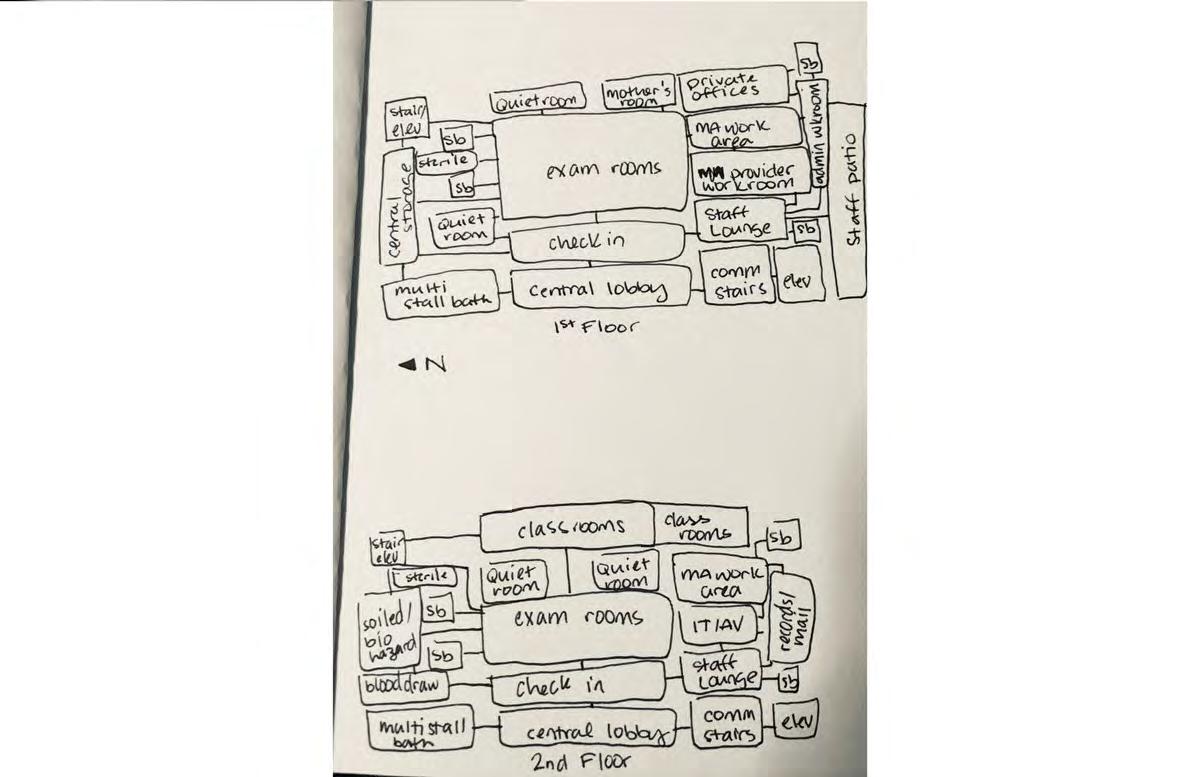 sb
private
offices
mother's
room
Quiet room
stair/
elev
admin wkroom
Staff patio
MA work
area
sb
sterile
exam rooms
central
storage
provider
workroom
sb
Quiet
room
Staff
Lounge
sb
check in
comm
stairs
elev
multi
stall bath
central lobby
1st Floor
N
classrooms
class
rooms
sb
stair
elev
sterile
Quiet
room
Quiet
room
MA work
area
records/
mail
soiled/
bio
hazard
sb
exam rooms
IT/AV
sb
staff
Lounge
sb
blooddraw
check in
multi stall
bath
central lobby
comm
stairs
elev
2nd Floor